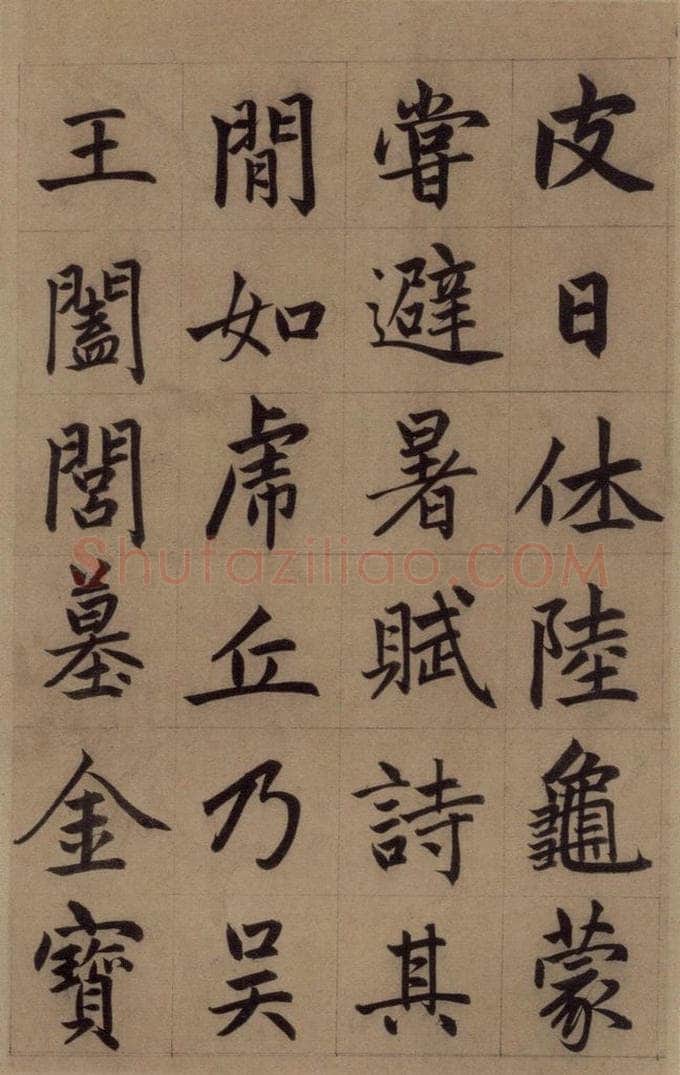 皮日休陸龜蒙
嘗避暑賦詩其
閒如虎丘乃吳
王闔閭墓金寶
Shufaziliao.COM